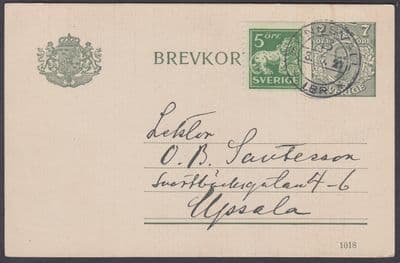 BREVKORT
5 ÖRE
SVERIGE
7
LBR
Lektor
O. B. Santesson
Svartbäcksgatan 4-6
Uppsala
1018